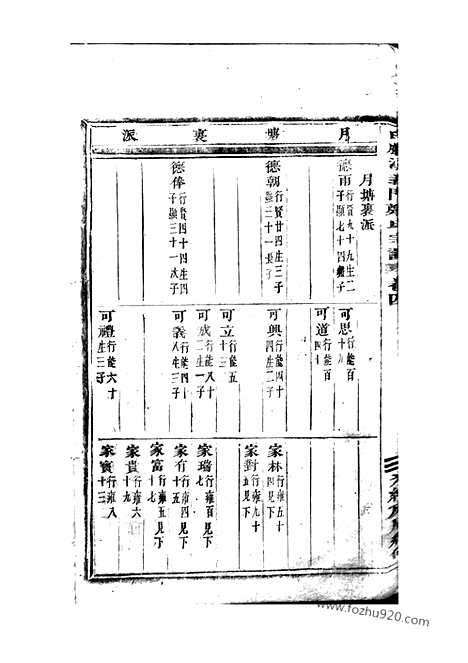 月塘裏派
月塘裏派
德甫行賢九十九生二
子顯七十四
德朝行賢廿四生三子
顯三十一長子
德俸行賢四十四生四
子顯三十一次子
可思行能百
十九
可道行能百
四十
可興行能四十
四生二子
可立行能五
十三
可成行能八十
二生一子
可義行能四十
八生三子
可禮行能六十
生三子
家林行雍五十
四見下
家對行雍九十
五見下
家瑞行雍百
七見下
家有行雍四
十五見下
家富行雍五
十七見下
家貴行雍六
十九
家寳行雍八
十三
www.fozhu920.com